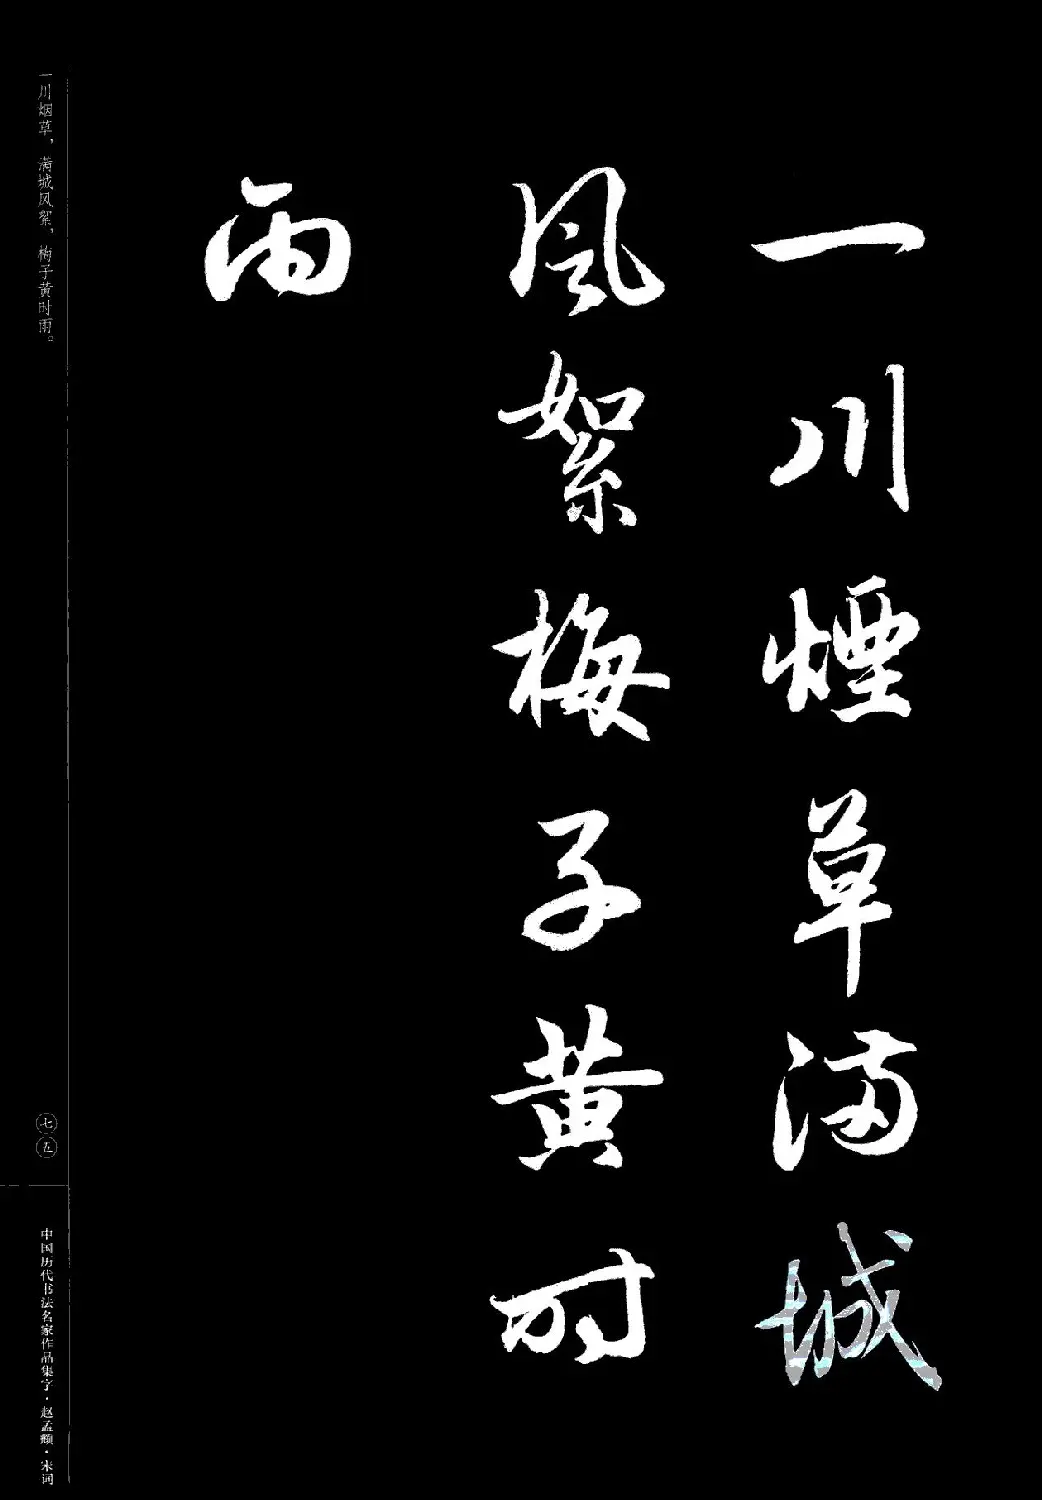 一川煙草满城
風絮梅子黄时
雨
一川烟草，满城风絮，梅子黄时雨。
七五
中国历代书法名家作品集字·赵孟頫·宋词